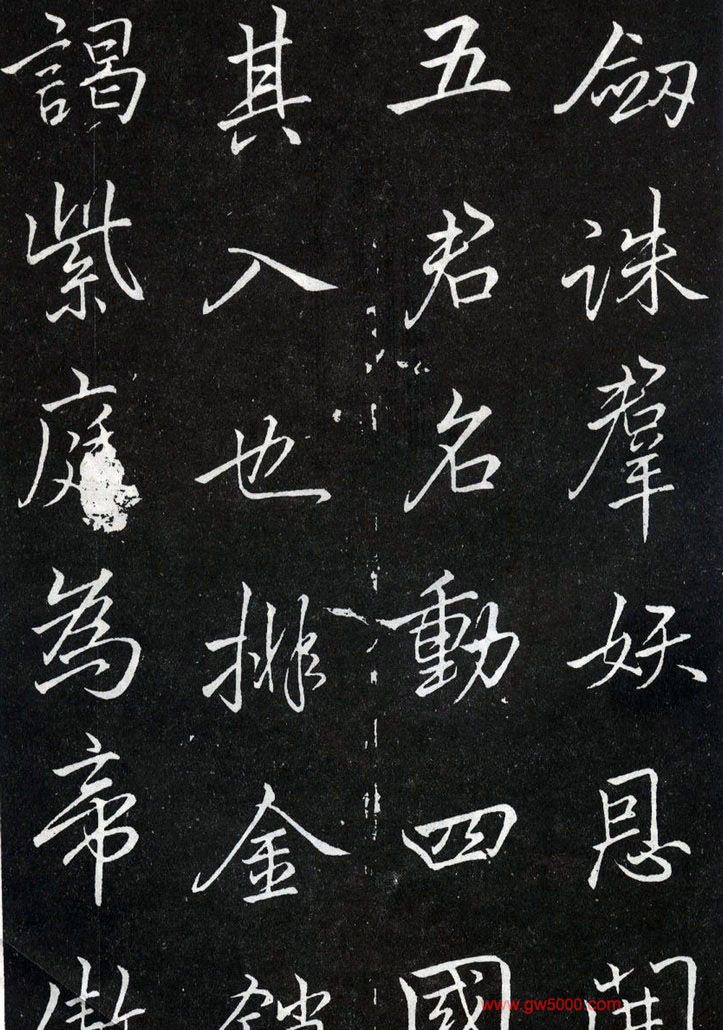 劒誅羣妖恩
五君名動四國
其入也排金
謁紫庭為帝
www.gw5000.com